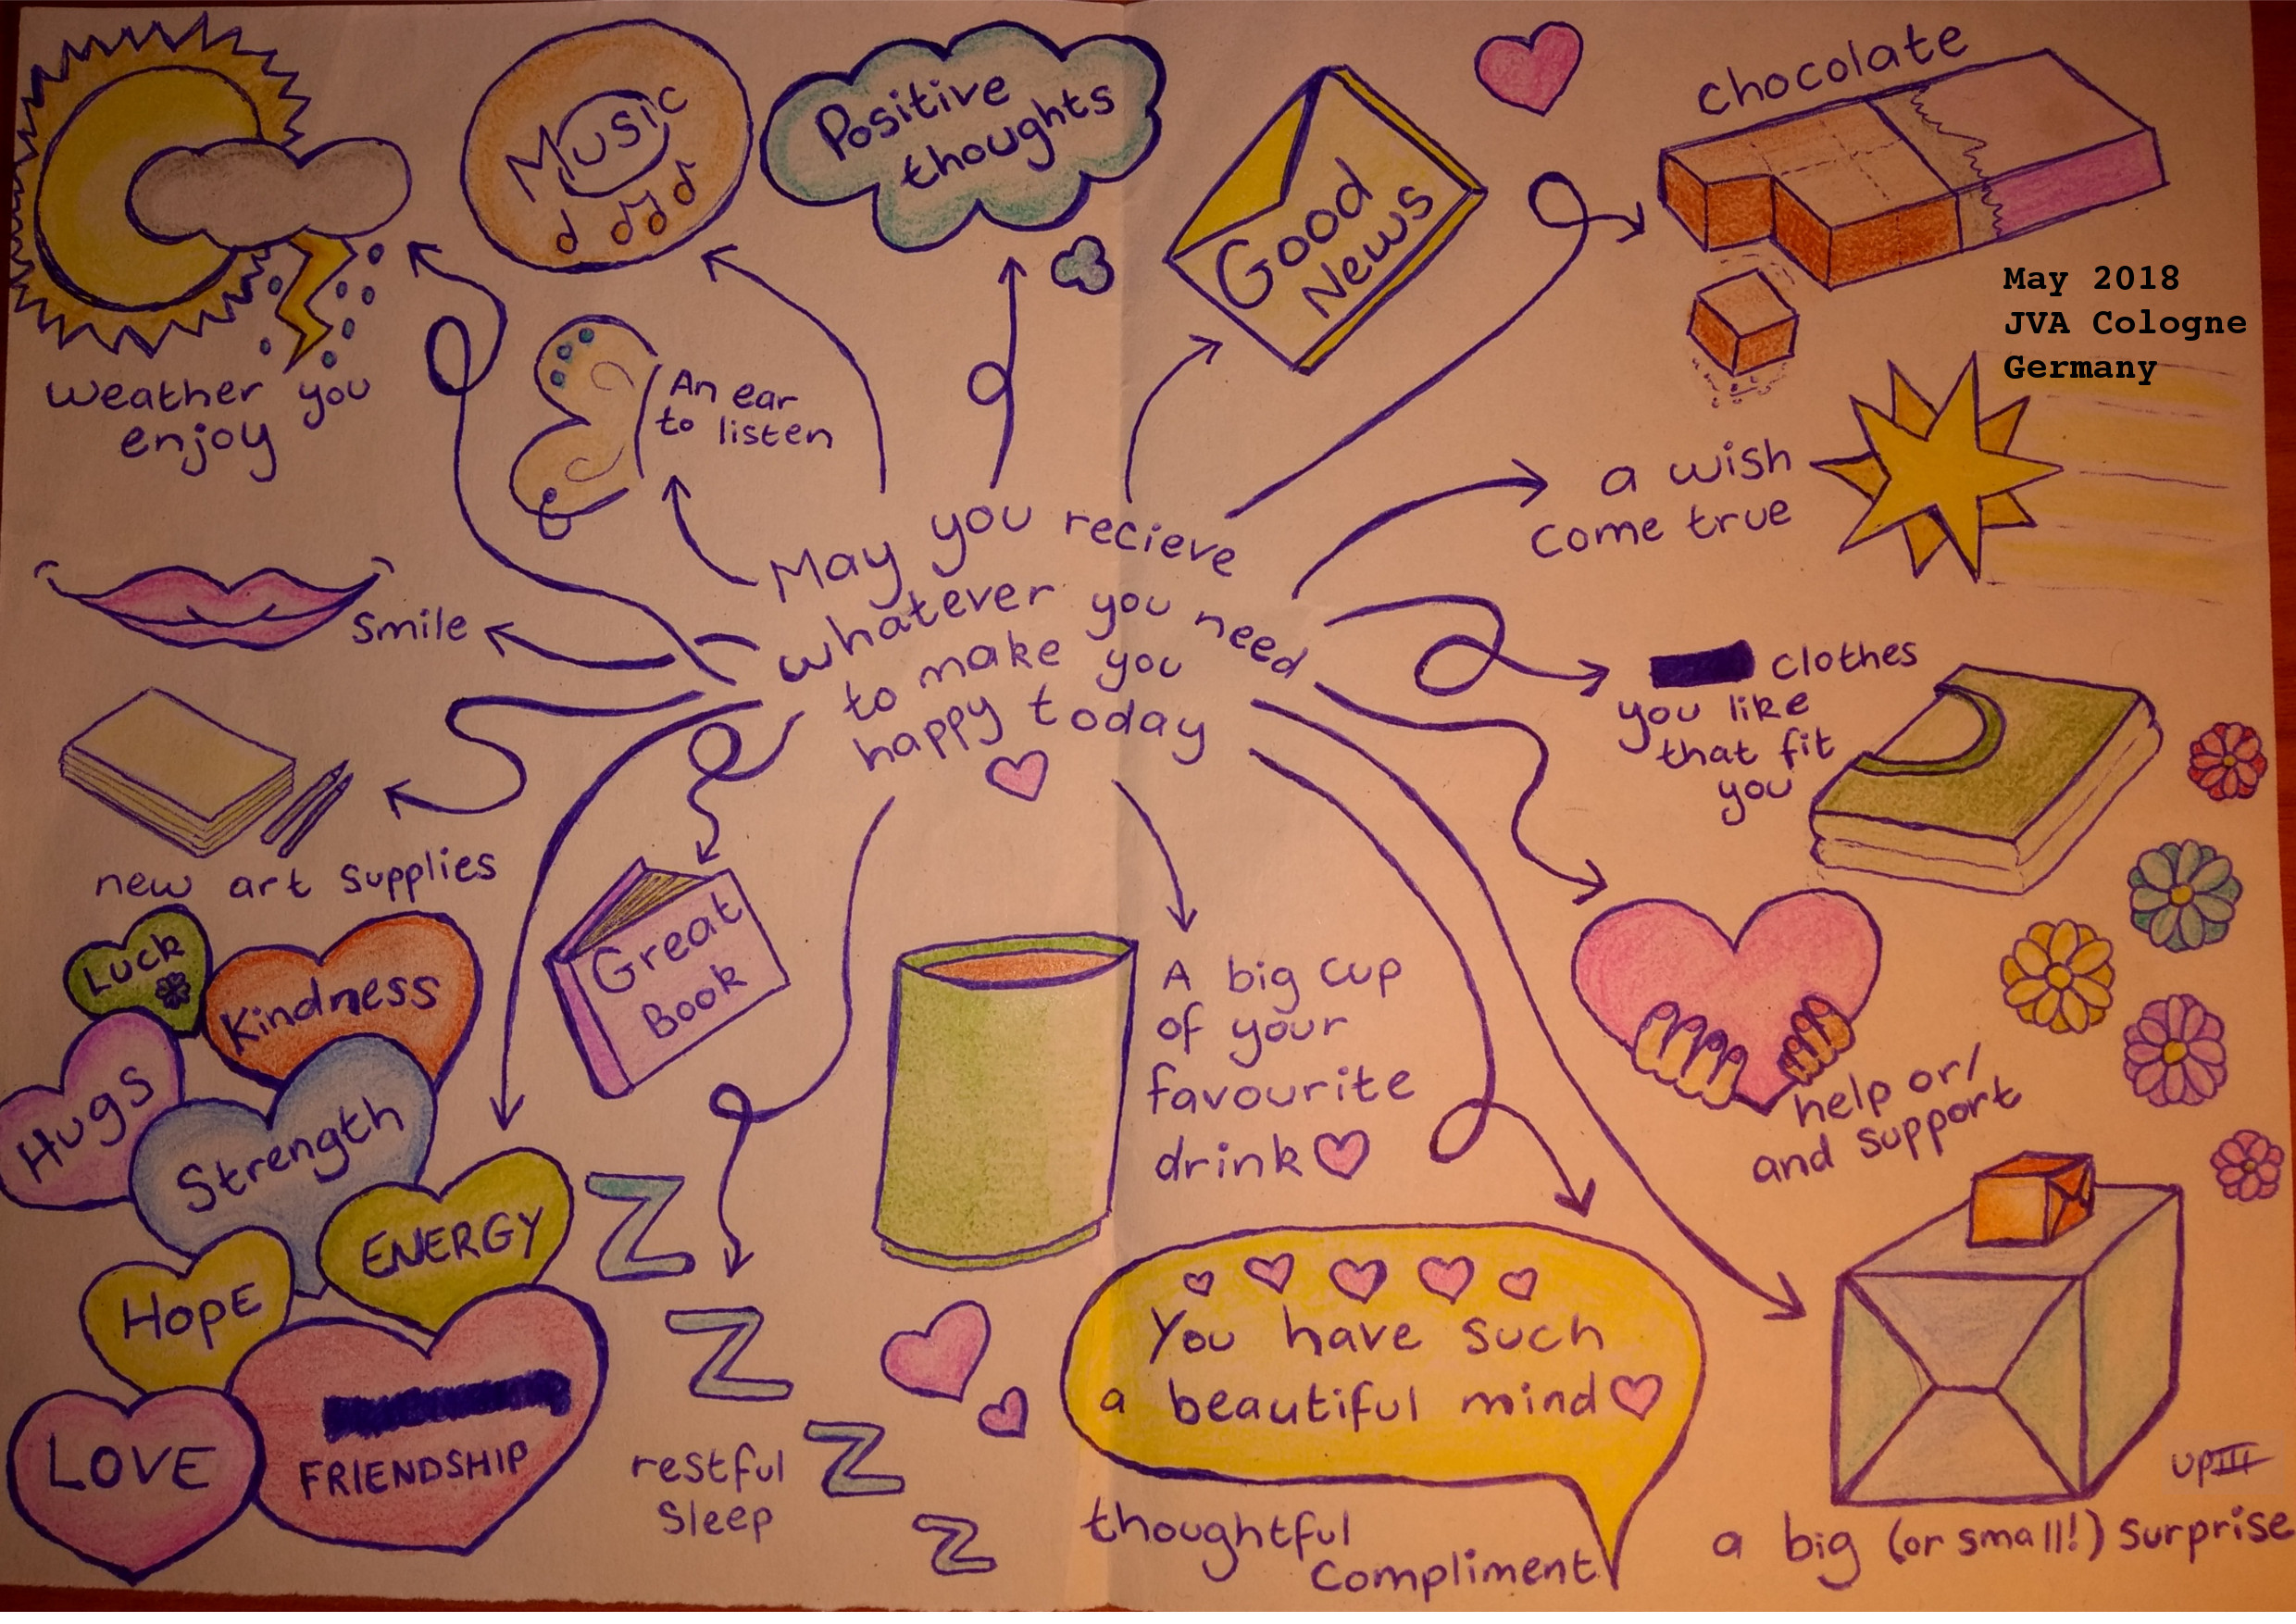 Music
Positive
thoughts
Good
News
chocolate
May 2018
JVA Cologne
Germany
weather you
enjoy
An ear
to listen
a wish
come true
May you recieve
whatever you need
to make you
happy today
Smile
clothes
you like
that fit
you
new art supplies
Great
Book
A big cup
of your
favourite
drink
help or/
and support
Luck
Kindness
Hugs
Strength
ENERGY
HOPE
LOVE
FRIENDSHIP
Z
Z
Z
Z
restful
sleep
You have such
a beautiful mind
thoughtful
compliment
UPIII
a big (or small!) surprise